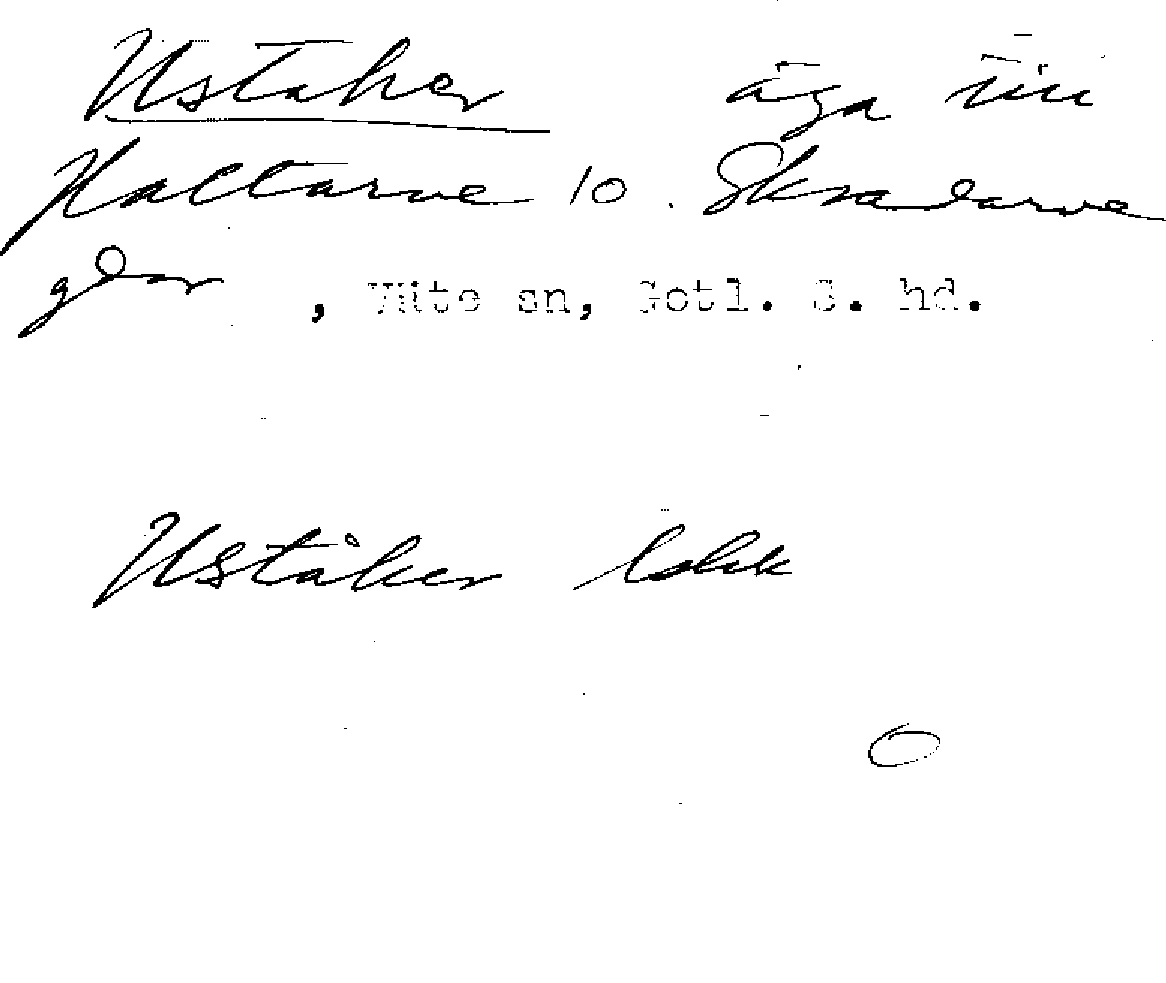 Ustaker äga till
Haltarve 10. Skradarve
gdar, Väte sn, Gotl. S. hd.
Uståker Lskk
O